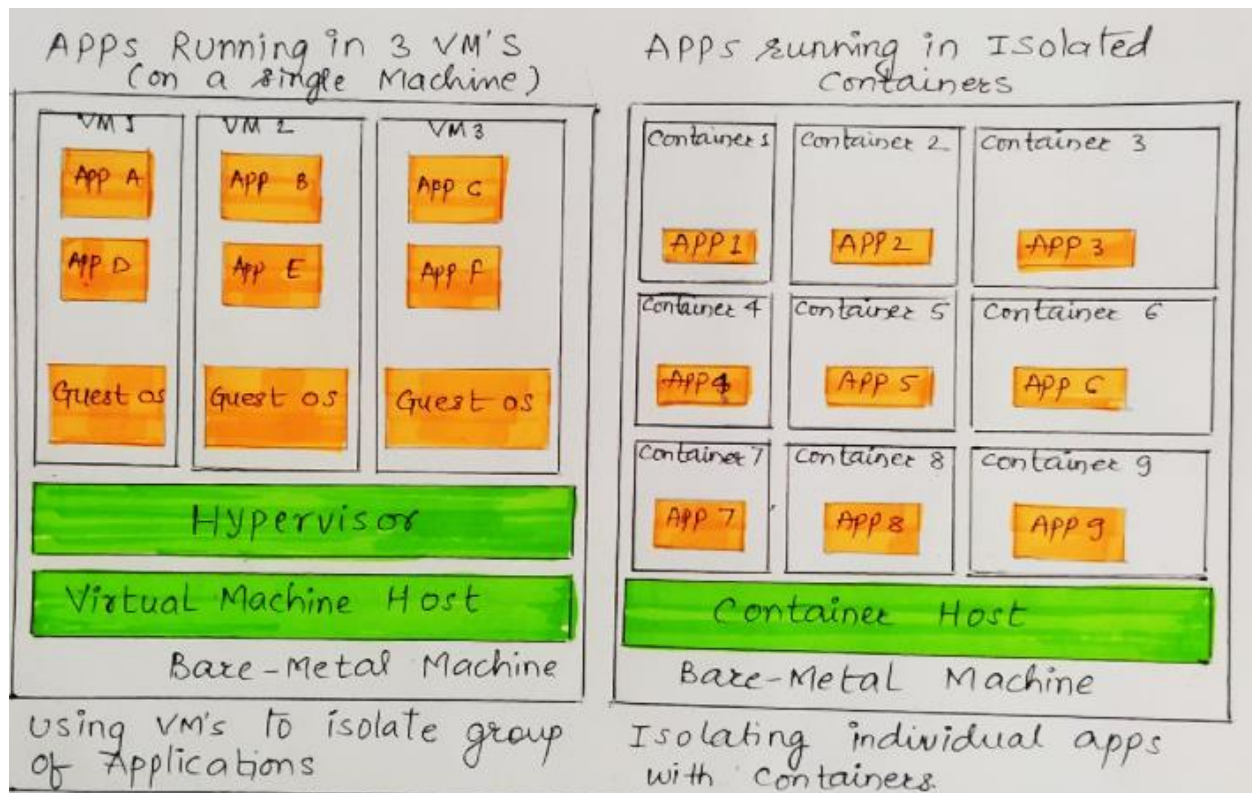 APPs Running in 3 VM'S
(on a single Machine)
VM 1
VM 2
VM 3
App A
APP B
APP C
App D
App E
APP F
Guest os
Guest os
Guest os
Hypervisor
Virtual Machine Host
Bare-Metal Machine
using VM's to isolate group
of Applications
APPs running in Isolated
Containers
Container 1
Container 2
Container 3
APP 1
APP 2
APP 3
Container 4
Container 5
Container 6
APP 4
APP 5
APP 6
Container 7
Container 8
Container 9
APP 7
APP 8
APP 9
Container Host
Bare-Metal Machine
Isolating individual apps
with Containers.